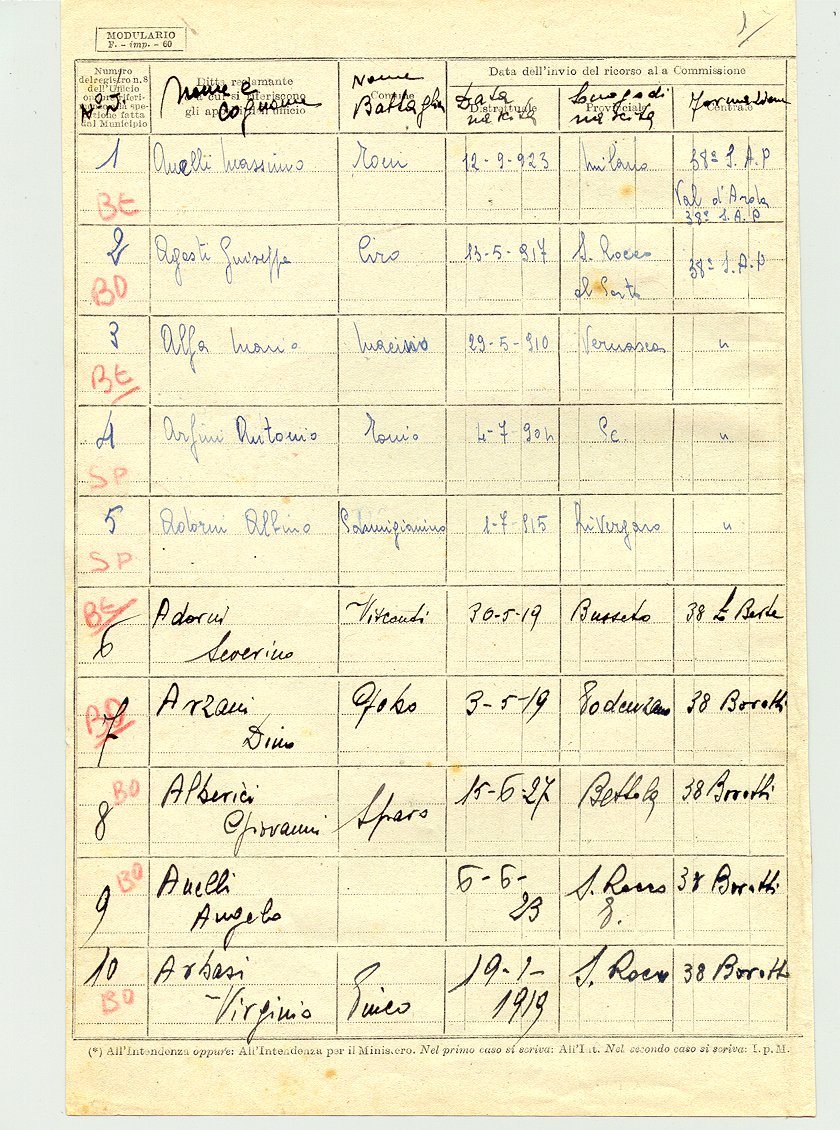 MODULARIO
F. - imp. - 60
1
Numero
del registro n. 8
dell'Ufficio
Municipio
N° d'
Ditta reclamante
a cui si riferiscono
gli appositi ufficio
Nome e
Cognome
Comune
Nome
Battaglia
Data dell'invio del ricorso alla Commissione
Distrettuale
Data
nascita
Provinciale
Luogo di
nascita
Centrale
Formazione
1 Anelli Massimo Tom 12-9-923 Milano 38ª S.A.P
BE Val d'Arda
38ª S.A.P
2 Agosti Giuseppe Ciro 13-5-917 S. Rocco 38ª S.A.P
BO al Porto
3 Alfa Mario Macisso 29-5-910 Vernasca "
BE
4 Arfini Antonio Tonio 4-7-904 Pc. "
SP
5 Adorni Albino Parmigianino 1-7-915 Rivergaro "
SP
BE
6 Adorni Visconti 30-5-19 Busseto 38
Severino
BO
7 Arzani 3-5-19 Podenzano 38 Borotti
Dino
BO
8 Alberici Sparo 15-6-27 Bettola 38 Borotti
Giovanni
BO
9 Anelli 6-6- S. Rocco 38 Borotti
Angelo 23 P.
10 Arbasi 19-1- S. Rocco 38 Borotti
BO Virginio 1919
(*) All'Intendenza oppure: All'Intendenza per il Ministero. Nel primo caso si scriva: All'Int. Nel secondo caso si scriva: I. p. M.